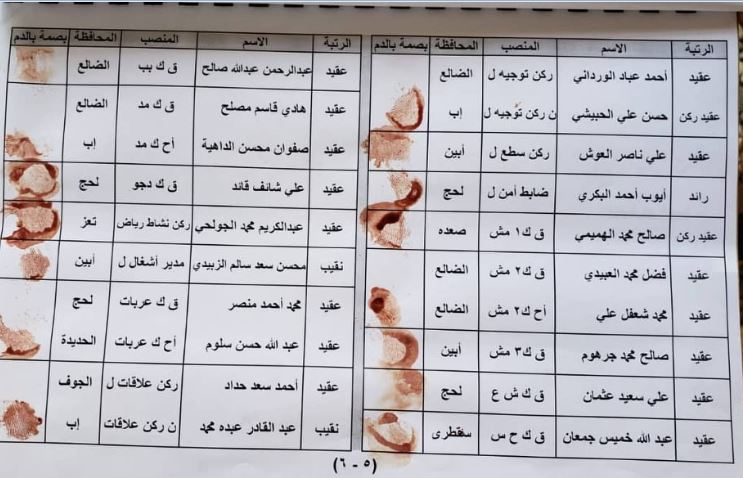 الرتبة الاسم المنصب المحافظة بصمة بالدم
عقيد أحمد عباد الورداني ركن توجيه ل الضالع
عقيد ركن حسن علي الحبيشي ن ركن توجيه ل إب
عقيد علي ناصر العوش ركن سطع ل أبين
رائد أيوب أحمد البكري ضابط أمن ل لحج
عقيد ركن صالح محمد الهميمي ق ك١ مش صعده
عقيد فضل محمد العبيدي ق ك٢ مش الضالع
عقيد محمد شعفل علي أح ك٢ مش الضالع
عقيد صالح محمد جرهوم ق ك٣ مش أبين
عقيد علي سعيد عثمان ق ك ش ع لحج
عقيد عبد الله خميس جمعان ق ك ح س سقطرى
الرتبة الاسم المنصب المحافظة بصمة بالدم
عقيد عبدالرحمن عبدالله صالح ق ك بب الضالع
عقيد هادي قاسم مصلح ق ك مد الضالع
عقيد صفوان محسن الداهية أح ك مد إب
عقيد علي شائف قائد ق ك دجو لحج
عقيد عبدالكريم محمد الجولحي ركن نشاط رياض تعز
نقيب محسن سعد سالم الزبيدي مدير أشغال ل أبين
عقيد محمد أحمد منصر ق ك عربات لحج
عقيد عبد الله حسن سلوم أح ك عربات الحديدة
عقيد أحمد سعد حداد ركن علاقات ل الجوف
نقيب عبد القادر عبده محمد ن ركن علاقات إب
(٥ - ٦)